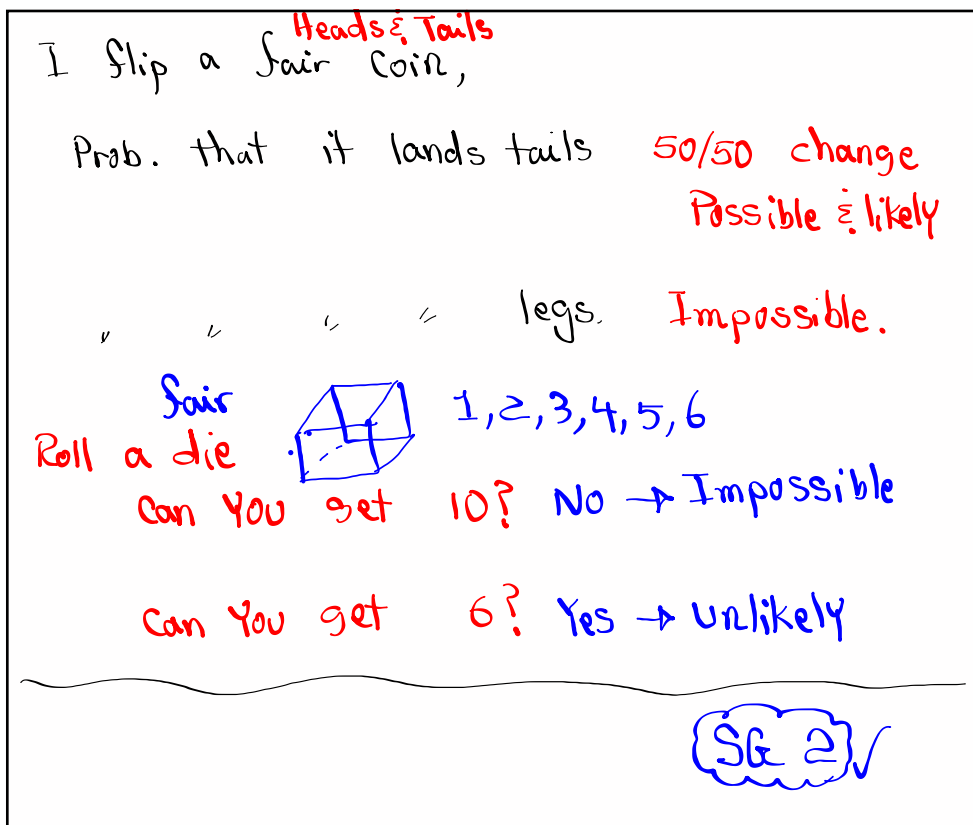 Heads & Tails
I flip a fair coin,
Prob. that it lands tails 50/50 change
Possible & likely
" " " " legs. Impossible.
fair 1,2,3,4,5,6
Roll a die
Can You get 10? No → Impossible
Can You get 6? Yes → Unlikely
SG 2 ✓